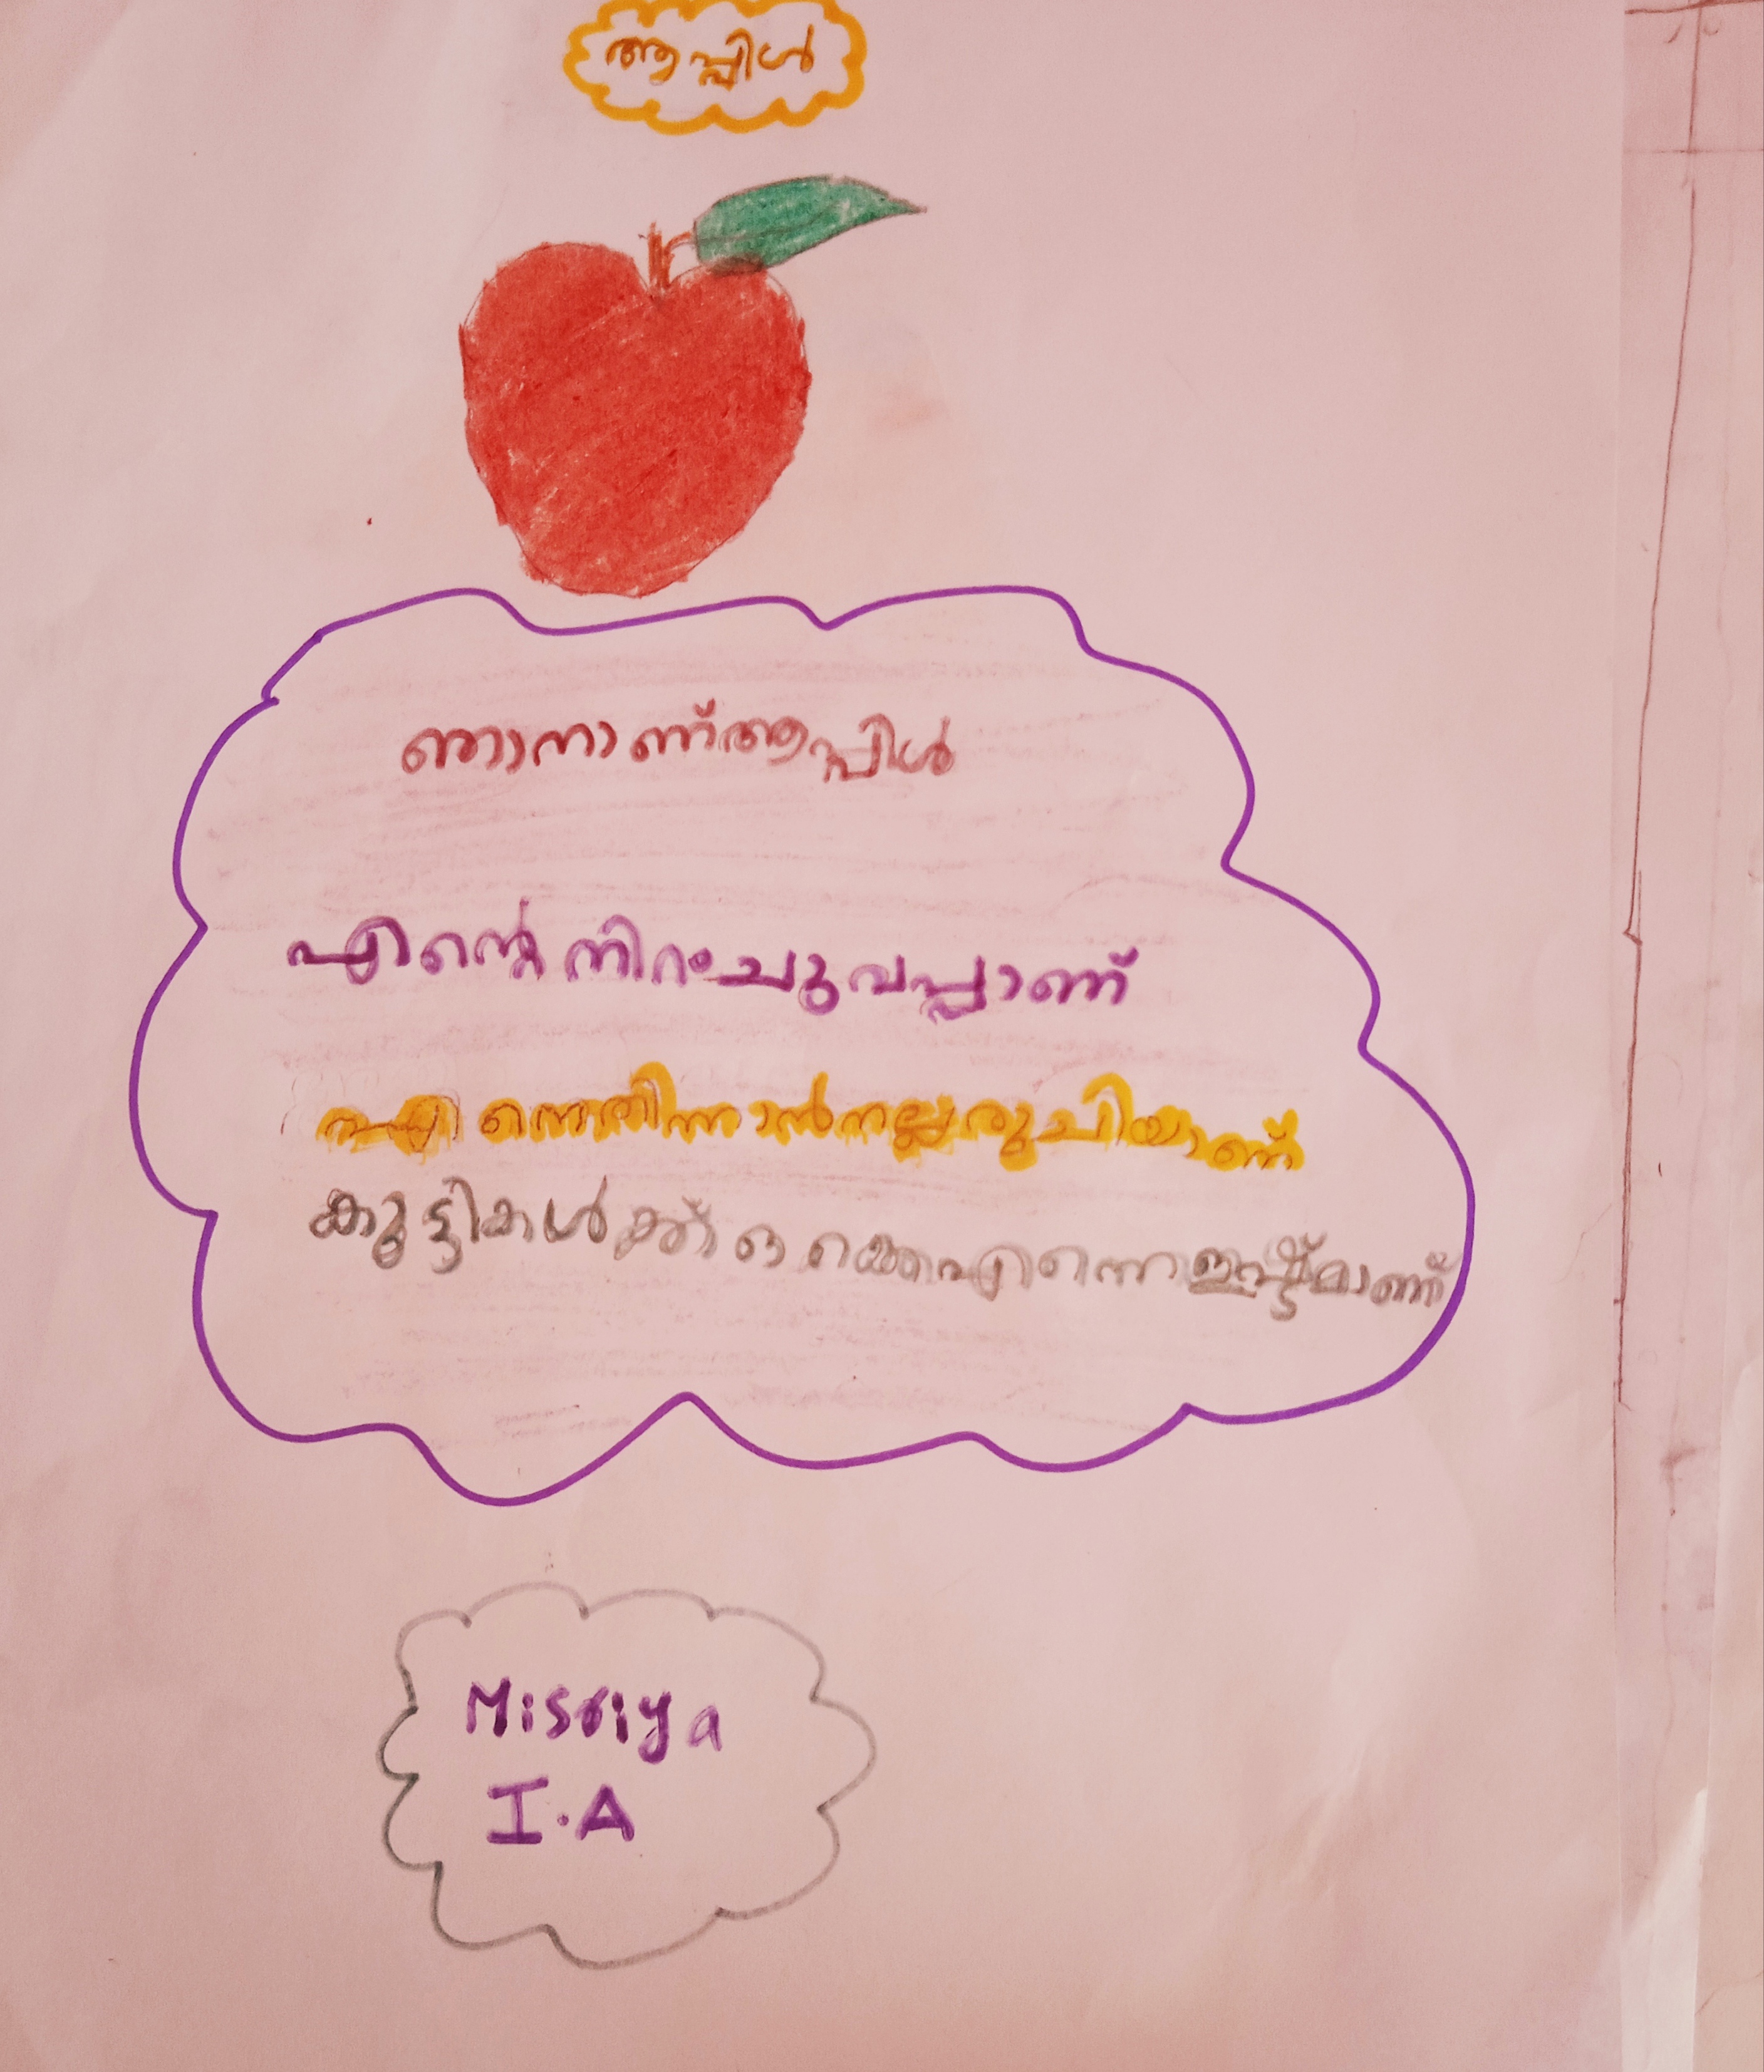 ആപ്പിൾ
ഞാനാണ് ആപ്പിൾ
എന്റെ നിറം ചുവപ്പാണ്
എന്നെ തിന്നാൻ നല്ല രുചിയാണ്
കുട്ടികൾക്ക് ഒക്കെ എന്നെ ഇഷ്ട്മാണ്
Misriya
I.A